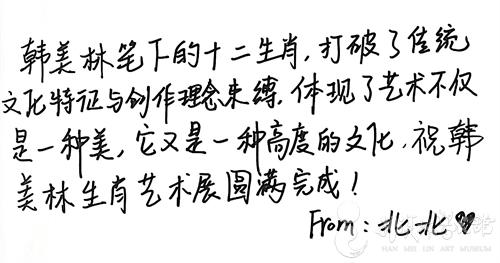 韩美林笔下的十二生肖,打破了传统
文化特征与创作理念束缚,体现了艺术不仅
是一种美,它又是一种高度的文化,祝韩
美林生肖艺术展圆满完成!
From:北北♥
HAN MEI LIN ART MUSEUM